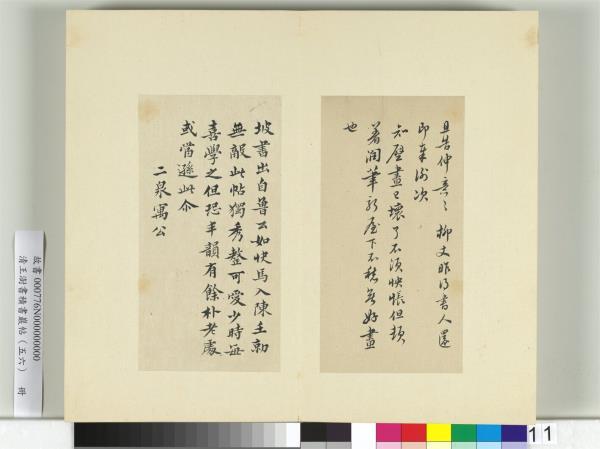 且告仲意々 柳丈昨得書人還
即奉謝次
知壁畫已壞了不須怏悵但頓
著潤筆新屋下不愁無好畫
也
坡書出自魯公如快馬入陳勍
無敵此帖獨秀整可愛少時每
喜學之但恐丰韻有餘朴老處
或當遜此尒
二泉寓公
故書 000776N000000000
清王澍書積書巖帖（五六） 冊
11